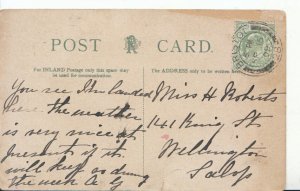 POST CARD.
For INLAND Postage only this space may be used for communication.
The ADDRESS only to be written here.
You see I have landed
here the weather
is very nice at
present if it
will keep as during
the week A. G
Miss H Roberts
141 King St
Wellington
Salop